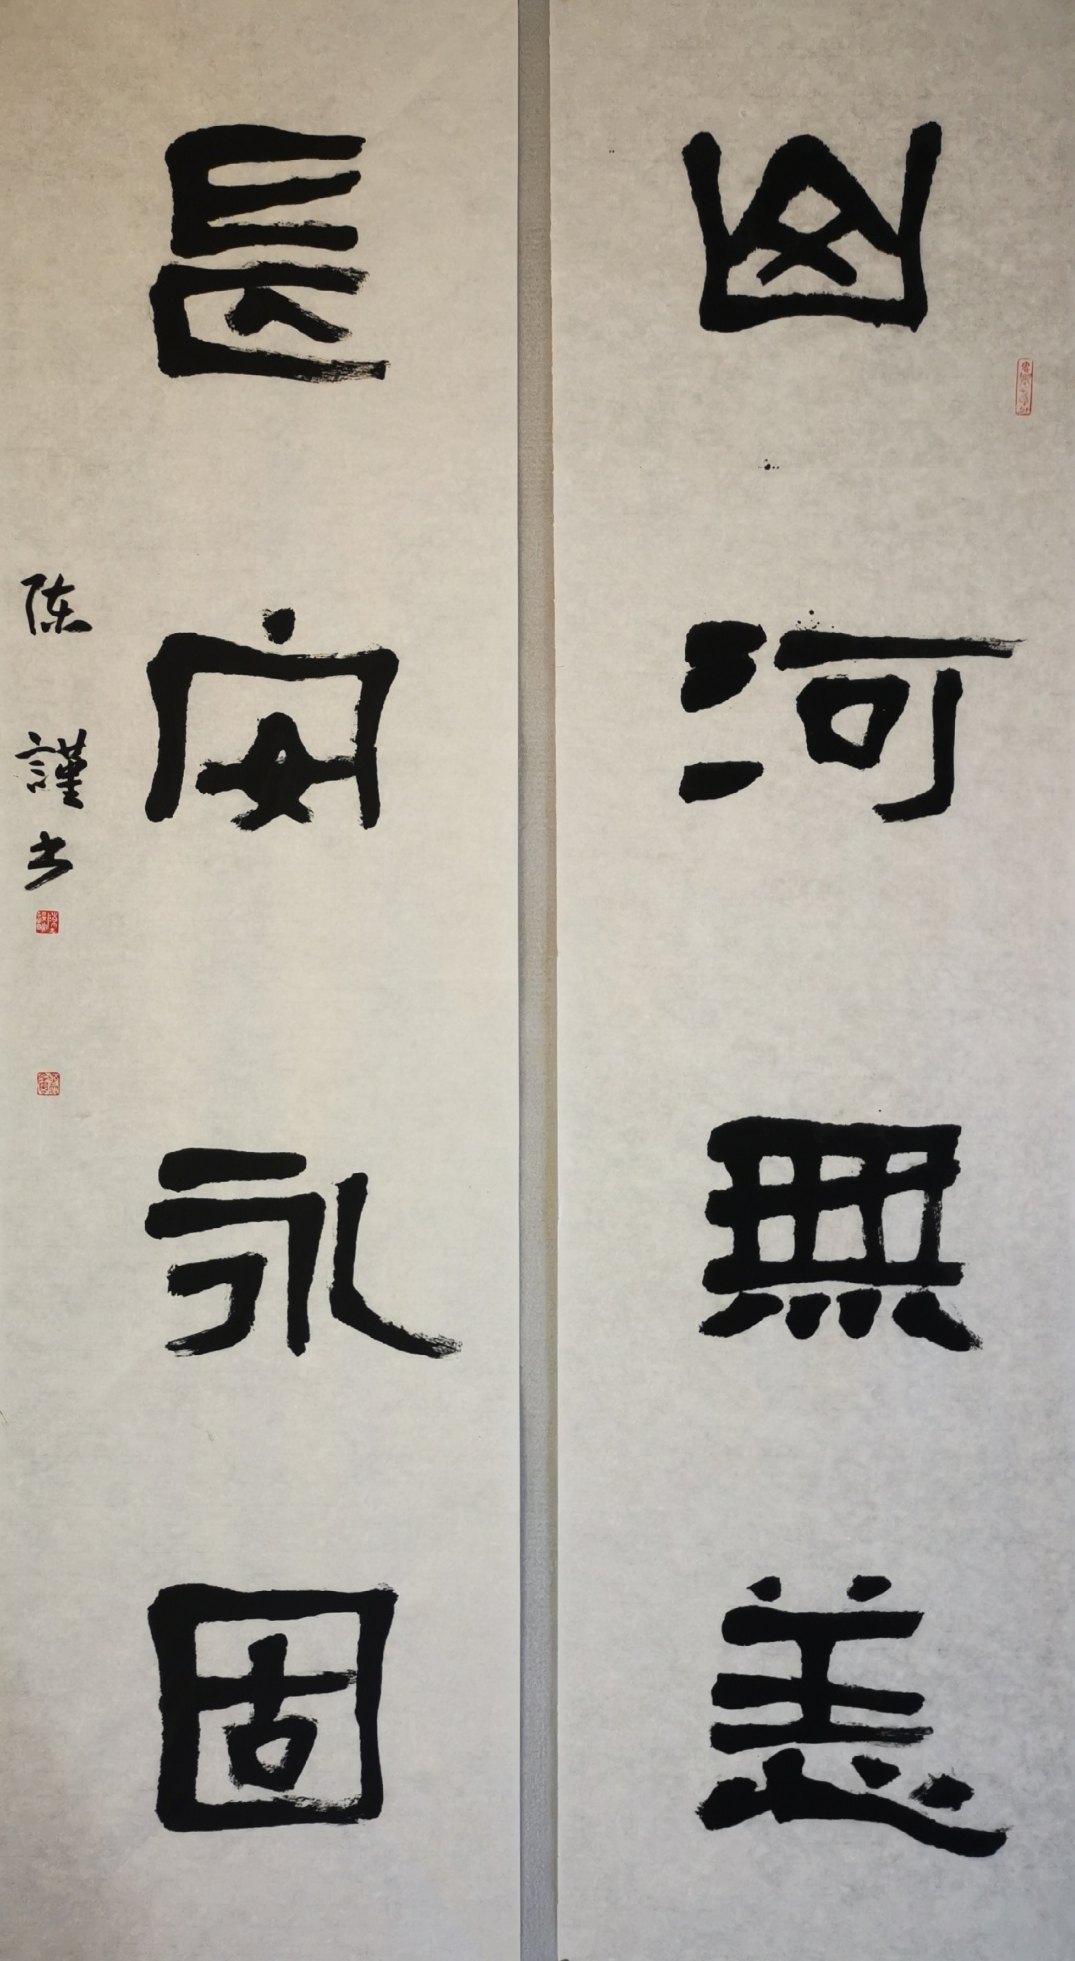 山河無恙
長安永固
陈謹书